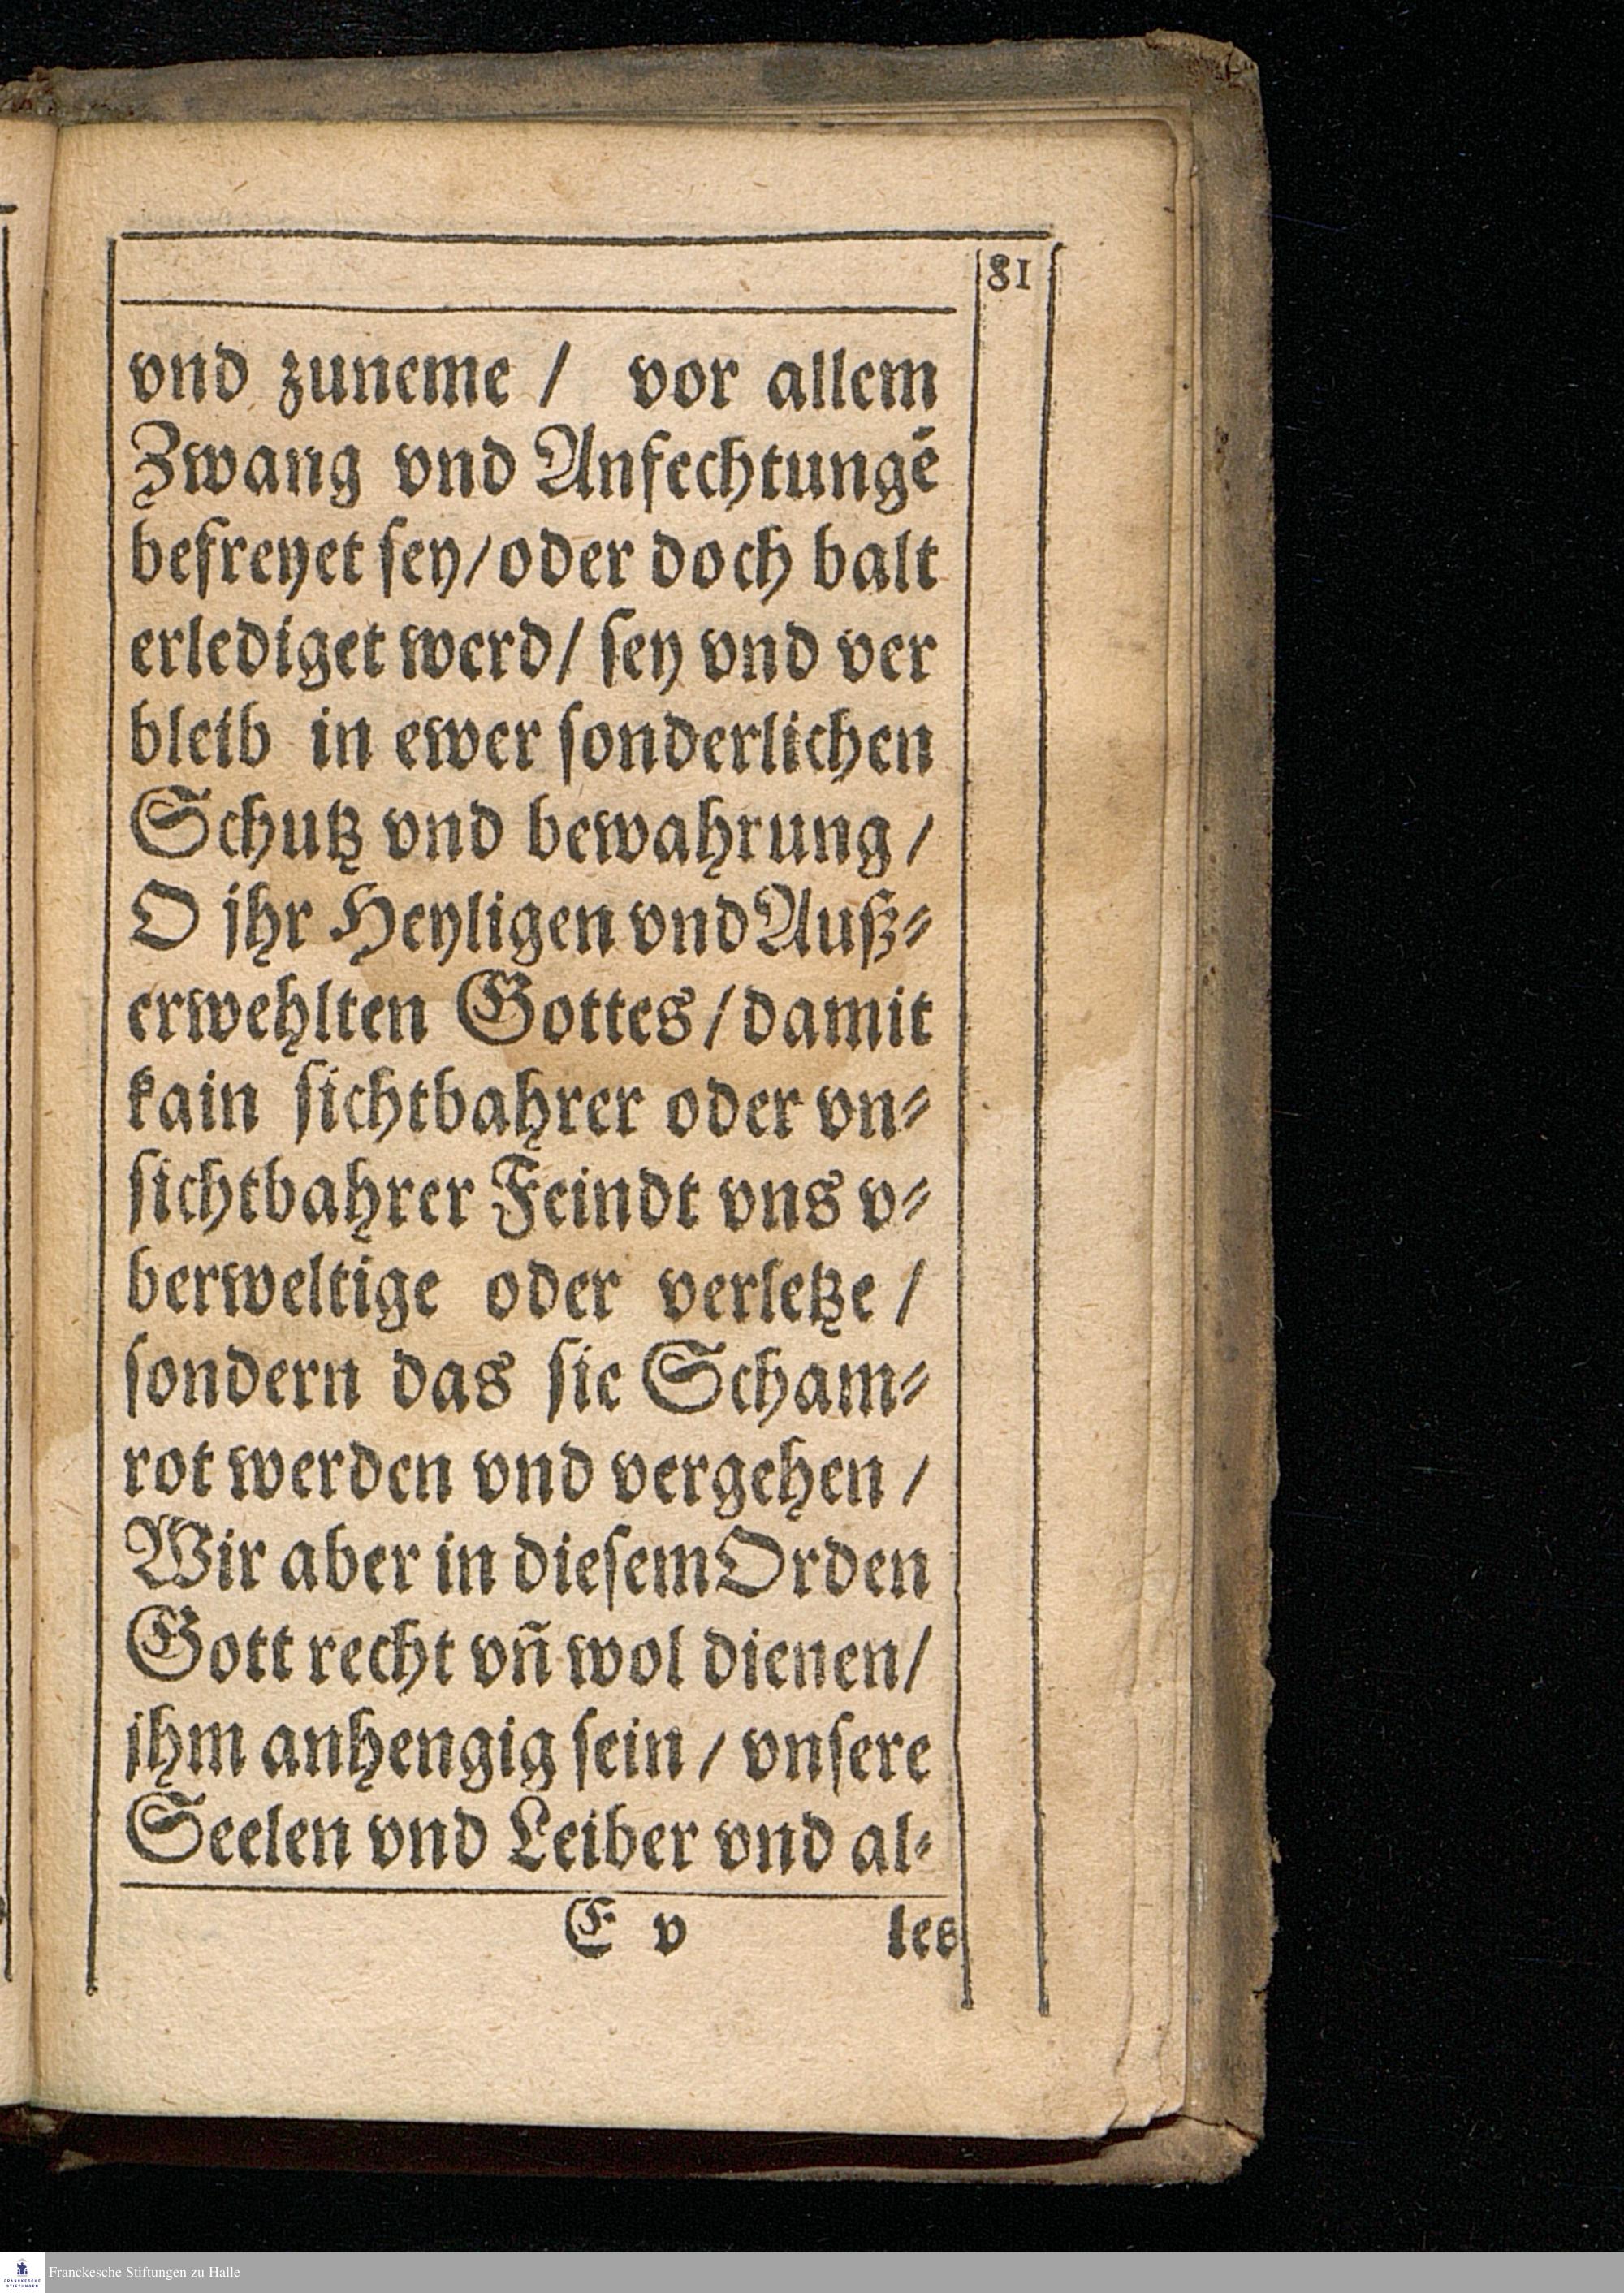 81
vnd zuneme / vor allem
Zwang vnd Anfechtungē
befreyet ſey/oder doch balt
erlediget werd/ ſey vnd ver
bleib in ewer ſonderlichen
Schutz vnd bewahrung /
O jhr Heyligen vnd Auß⸗
erwehlten Gottes / damit
kain ſichtbahrer oder vn⸗
ſichtbahrer Feindt vns v⸗
berweltige oder verletze /
ſondern das ſie Scham⸗
rot werden vnd vergehen /
Wir aber in dieſem Orden
Gott recht vñ wol dienen/
jhm anhengig ſein / vnſere
Seelen vnd Leiber vnd al⸗
E v les
Franckesche Stiftungen zu Halle
FRANCKESCHE
STIFTUNGEN